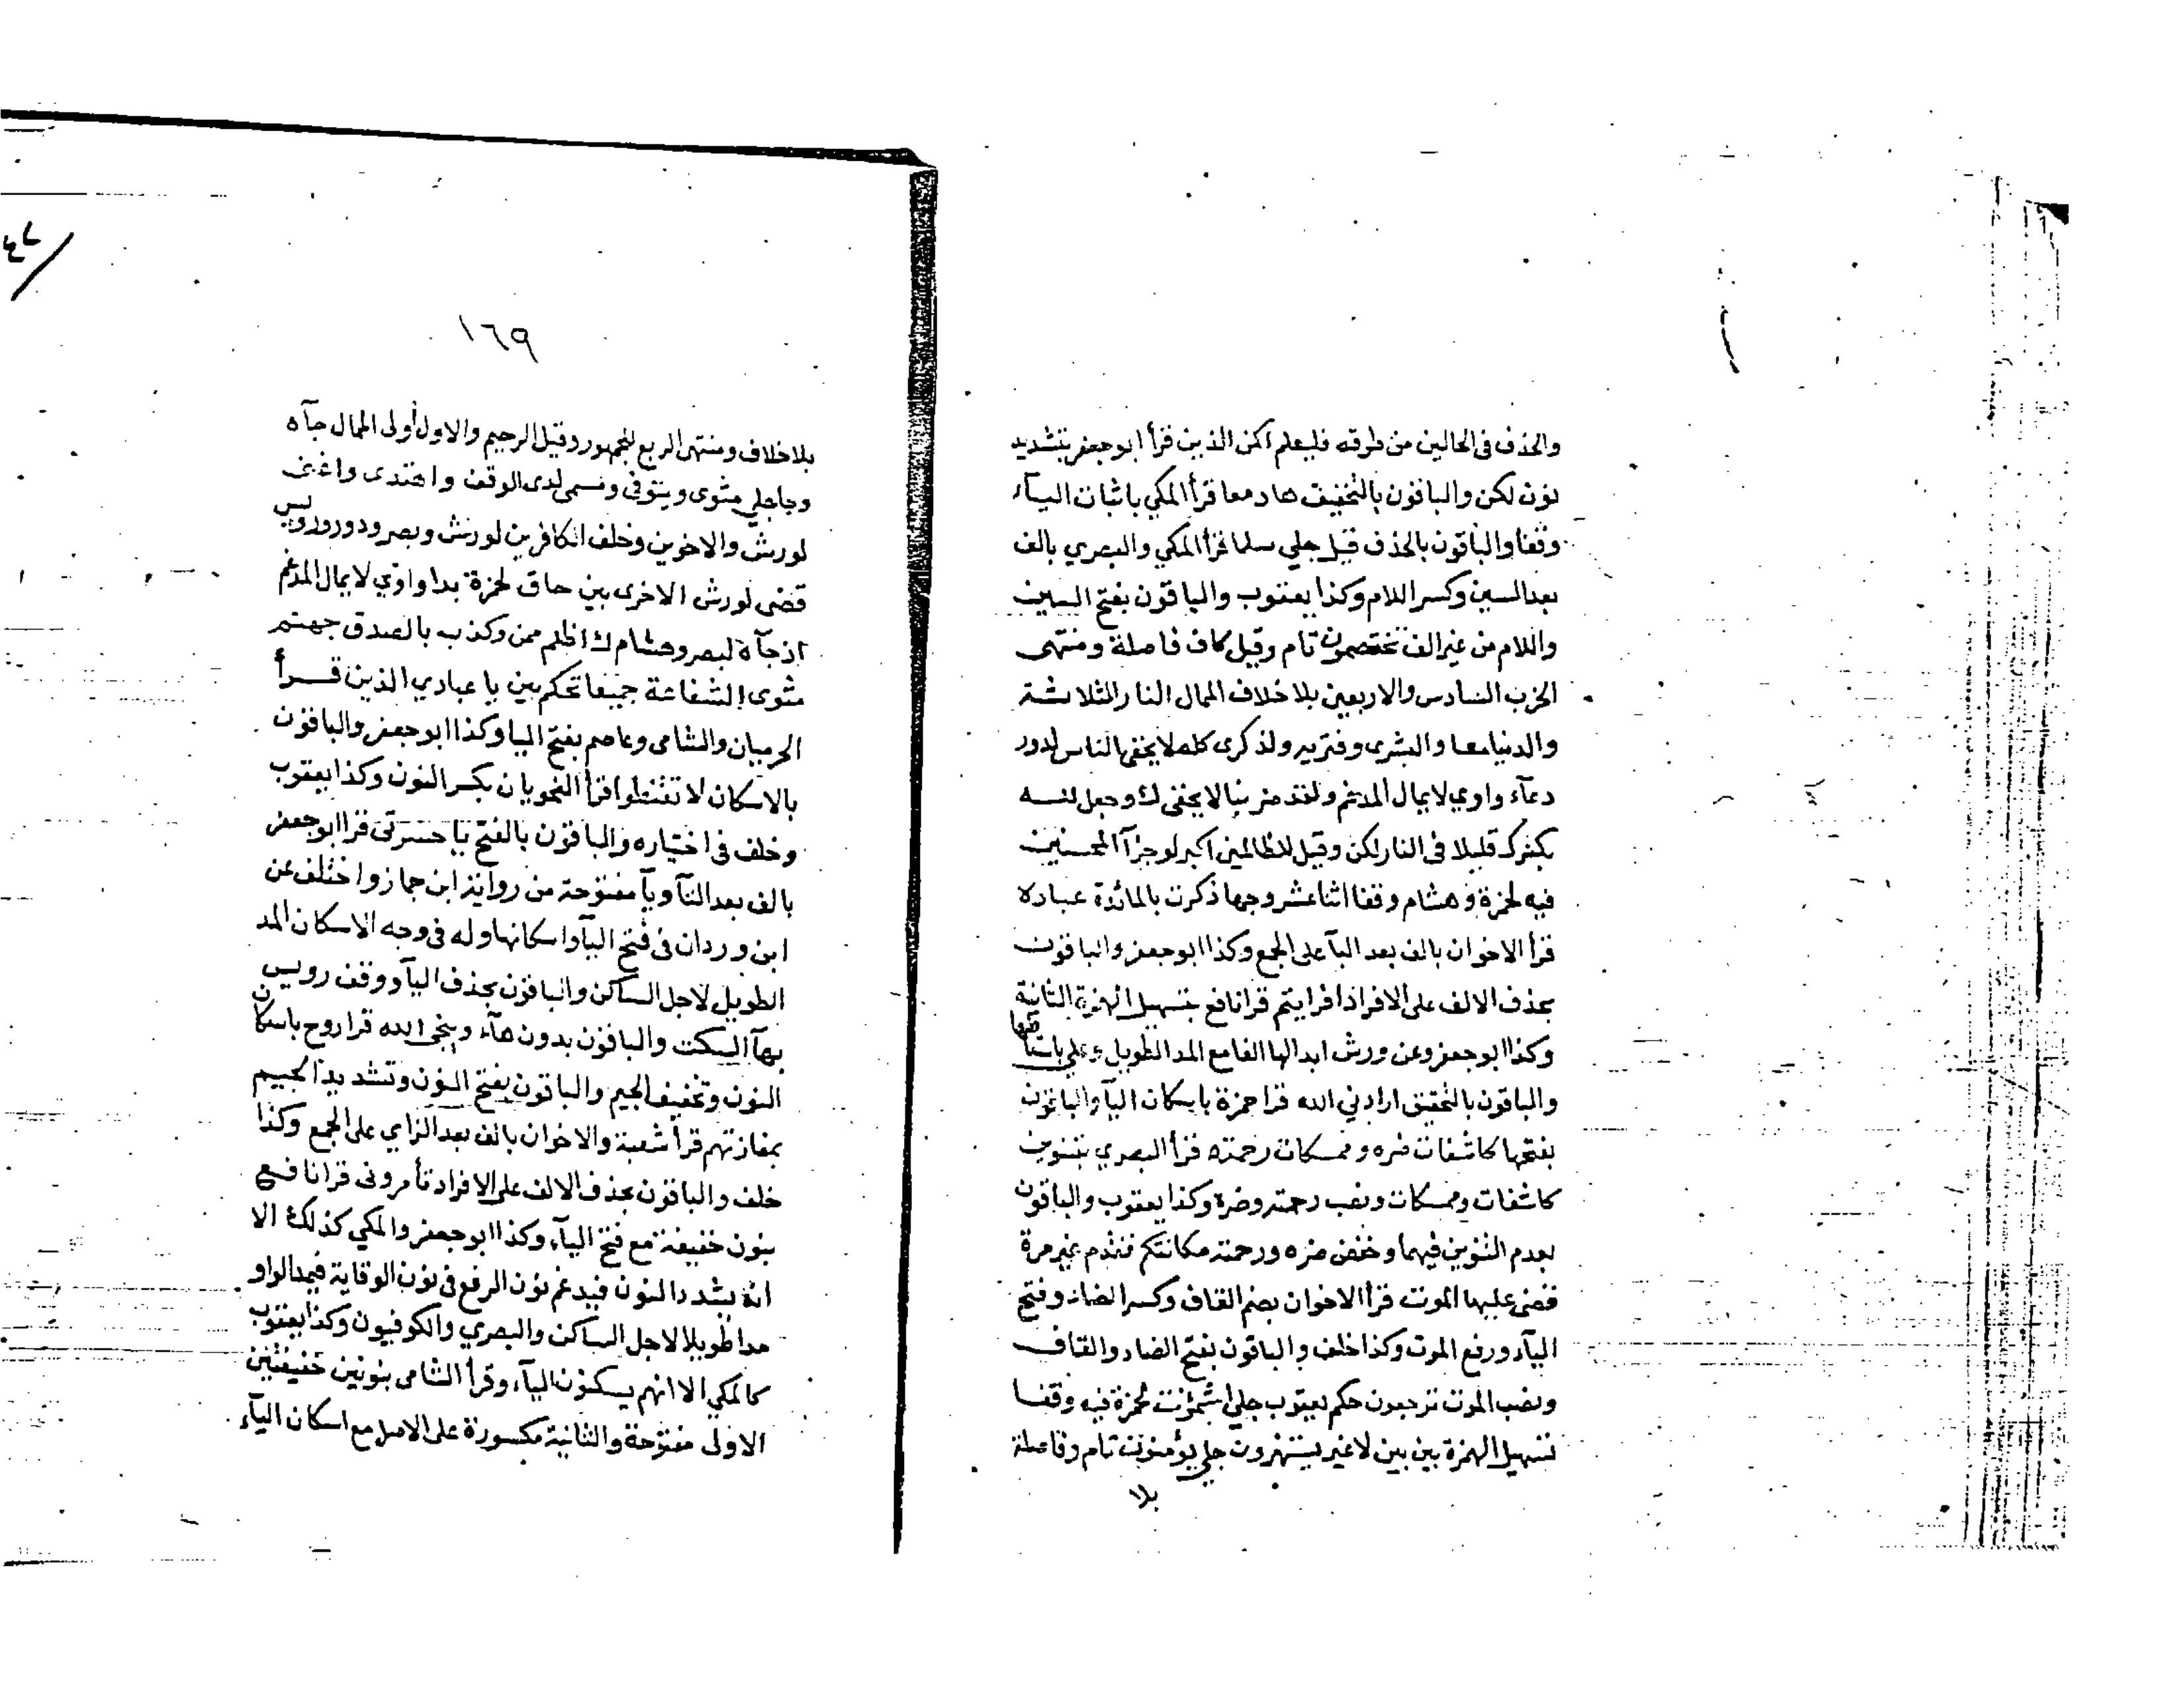 والحذف فى الحالين من طرقه فليعلم لكن الذين قرأ ابوجعفر بتشديد
نون لكن والباقون بالتخفيف هاد معا قرأ المكي باثبات اليآء
وقفا والباقون بالحذف قيل جلي سلما قرأ المكي والبصري بالف
بعد السين وكسر اللام وكذا يعقوب والباقون بفتح السين
واللام من غير الف تختصمون تام وقيل كاف فاصلة ومنتهى
الحزب السادس والاربعين بلا خلاف الممال النار الثلاثة
والدنيا معا والبشرى وفترىه ولذكرى كله لا يخفى الناس لدور
دعآء واوي لا يمال المدغم ولقد ضربنا لا يخفى لك وجعل لله
بكفرك قليلا فى النار لكن وقيل للظالمين اكبر لو جزآ المحسنين
فيه لحمزة وهشام وقفا اثنا عشر وجها ذكرت بالمائدة عباده
قرأ الاخوان بالف بعد البآ على الجمع وكذا ابوجعفر والباقون
بحذف الالف على الافراد افرايتم قرا نافع بتسهيل الهمزة الثانية
وكذا ابوجعفر وعن ورش ابدالها الفا مع المد الطويل وعلي باسقاطها
والباقون بالتحقيق ارادني الله قرا حمزة باسكان اليآ والباقون
بفتحها كاشفات ضره وممسكات رحمته قرأ البصري بتنوين
كاشفات وممسكات ونصب رحمته وضره وكذا يعقوب والباقون
بعدم التنوين فيهما وخفض ضره ورحمته مكانتكم تقدم غير مرة
قضى عليها الموت قرأ الاخوان بضم القاف وكسر الضاد وفتح
اليآء ورفع الموت وكذا خلف والباقون بفتح الضاد والقاف
ونصب الموت ترجعون حكم يعقوب جلي اشمئزت لحمزة فيه وقفا
تسهيل الهمزة بين بين لا غير يستهزون جلي يؤمنون تام وفاصلة
بلا
١٦٩
بلا خلاف ومنتهى الربع للجمهور وقيل الرحيم والاول أولى الممال جآء
وجا جلي مثوى ويتوفى ومسمى لدى الوقف واهتدى واغنى
لورش والاخوين وخلف الكافرين لورش وبصر ودور ورويس
قضى لورش الاخرى بين حاق لحمزة بدا واوي لا يمال المدغم
اذ جآءه لبصر وهشام ك اظلم ممن وكذب بالصدق جهنم
مثوى الشفاعة جميعا تحكم بين يا عبادي الذين قرأ
الحرميان والشامى وعاصم بفتح اليا وكذا ابوجعفر والباقون
بالاسكان لا تقنطوا قرأ النحويان بكسر النون وكذا يعقوب
وخلف فى اختياره والباقون بالفتح يا حسرتى قرا ابوجعفر
بالف بعد التآ ويآ مفتوحة من رواية ابن جماز واختلف عن
ابن وردان فى فتح اليآ واسكانها وله فى وجه الاسكان المد
الطويل لاجل الساكن والباقون بحذف اليآء ووقف رويس
بهآ السكت والباقون بدون هآء وينجى الله قرا روح باسكان
النون وتخفيف الجيم والباقون بفتح النون وتشديد الجيم
بمفازتهم قرأ شعبة والاخوان بالف بعد الزاي على الجمع وكذا
خلف والباقون بحذف الالف على الافراد تأمرونى قرا نافع
بنون خفيفة مع فتح اليآء وكذا ابوجعفر والمكي كذلك الا
انه يشدد النون فيدغم نون الرفع فى نون الوقاية فيمد الواو
مدا طويلا لاجل الساكن والبصري والكوفيون وكذا يعقوب
كالمكي الا انهم يسكنون اليآء وقرأ الشامى بنونين خفيفتين
الاولى مفتوحة والثانية مكسورة على الاصل مع اسكان اليآء